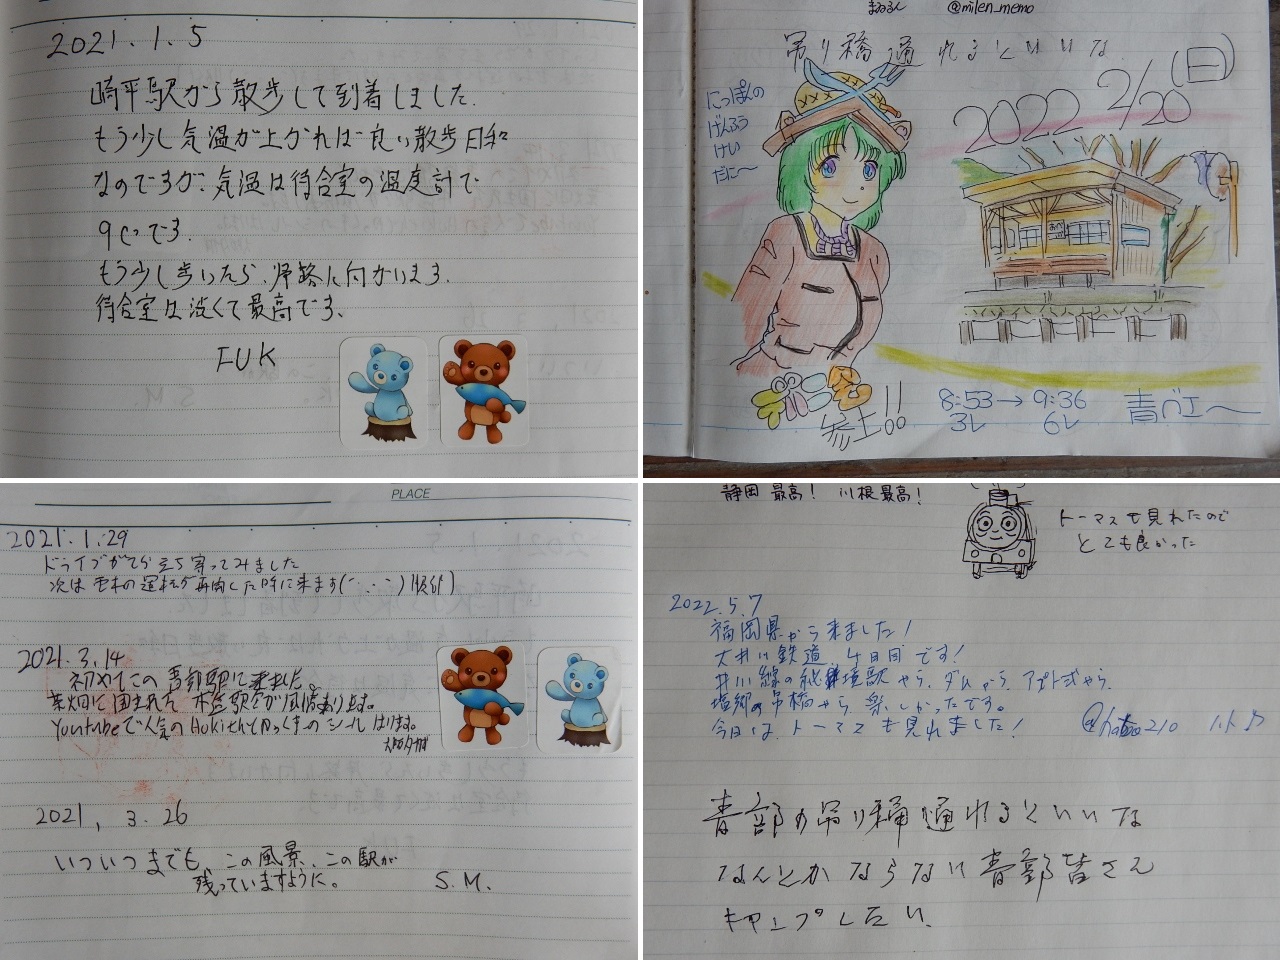 2021.1.5
崎平駅から散歩して到着しました.
もう少し気温が上がれば良い散歩日和
なのですが、気温は待合室の温度計で
9℃です.
もう少し歩いたら、帰路に向かいます.
待合室は渋くて最高です、
FUK
@milen_memo
吊り橋通れるといいな
2022 2/20(日)
にっぽんの
げんふう
けい
だに〜
参上!!
8:53→9:36
3レ 6レ
青ベエ〜
PLACE
2021.1.29
ドライブがてら立ち寄ってみました
次は 電車の運転が再開した時に来ます
2021.3.14
初めてこの青部駅に来ました。
茶畑に囲まれた 木造駅舎が風情あります。
Youtubeで人気の
のシール はります。
2021, 3. 26
いついつまでも、この風景、この駅が
残っていますように。
S.M.
静岡 最高! 川根最高!
トーマスも見れたので
とても良かった
2022.5.7
福岡県から来ました!
大井川鉄道 4日目です!
井川線の秘境駅やら、ダムやら、アプト式やら、
塩郷の吊橋やら 楽しかったです。
今日は、トーマスも見れました!
青部の吊り橋通れるといいな
なんとかならない 青部皆さん
キャンプしたい、